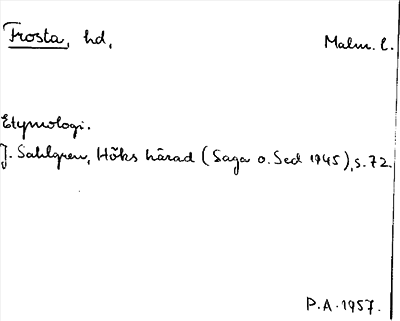 Frosta, hd,
Malm. l.
Etymologi.
J. Sahlgren, Höks härad (Saga o. Sed 1945), s. 72.
P.A. 1957.